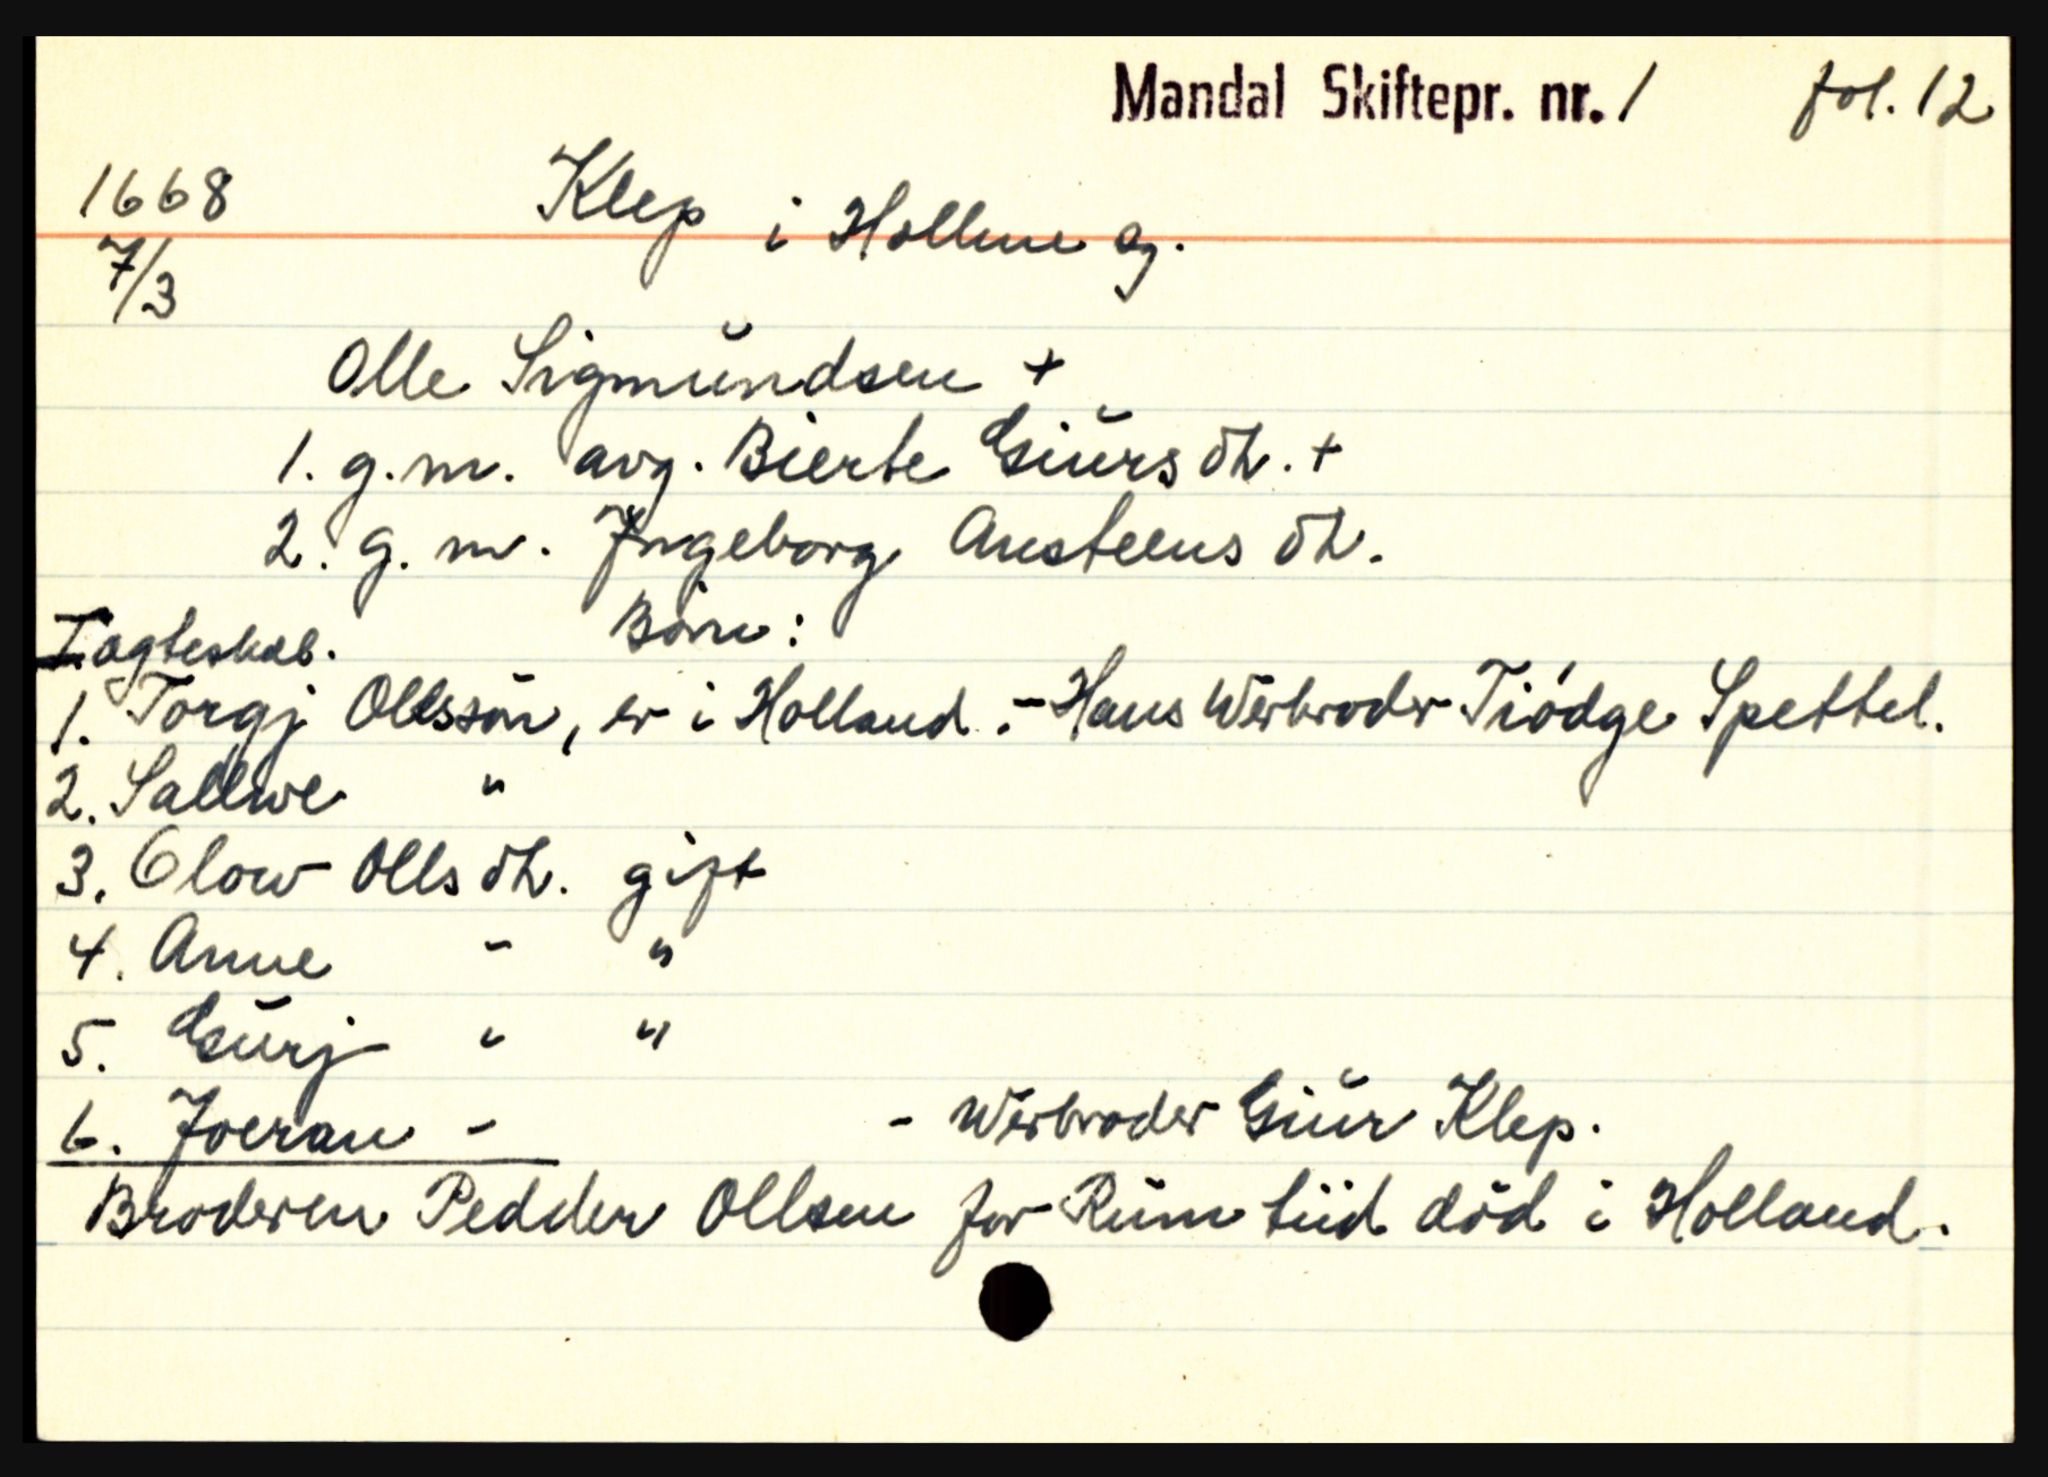 Mandal Skiftepr. nr. 1 fol. 12
1668 Klep i Hollme sg.
7/3
Olle Sigmundsen +
1. g.m. avg. Bierte Giurs dtr. +
2. g.m. Ingeborg Austeens dtr.
I ægteskab. Børn:
1. Torgj Ollssön, er i Holland. - Hans Werbroder Tiódge Spettel.
2. Sallwe "
3. Olow Olls dtr. gift
4. Anne - "
5. Gurj " "
6. Joeran - - Werbroder Giur Klep.
Broderen Pedder Ollsen for Rum tiid död i Holland.